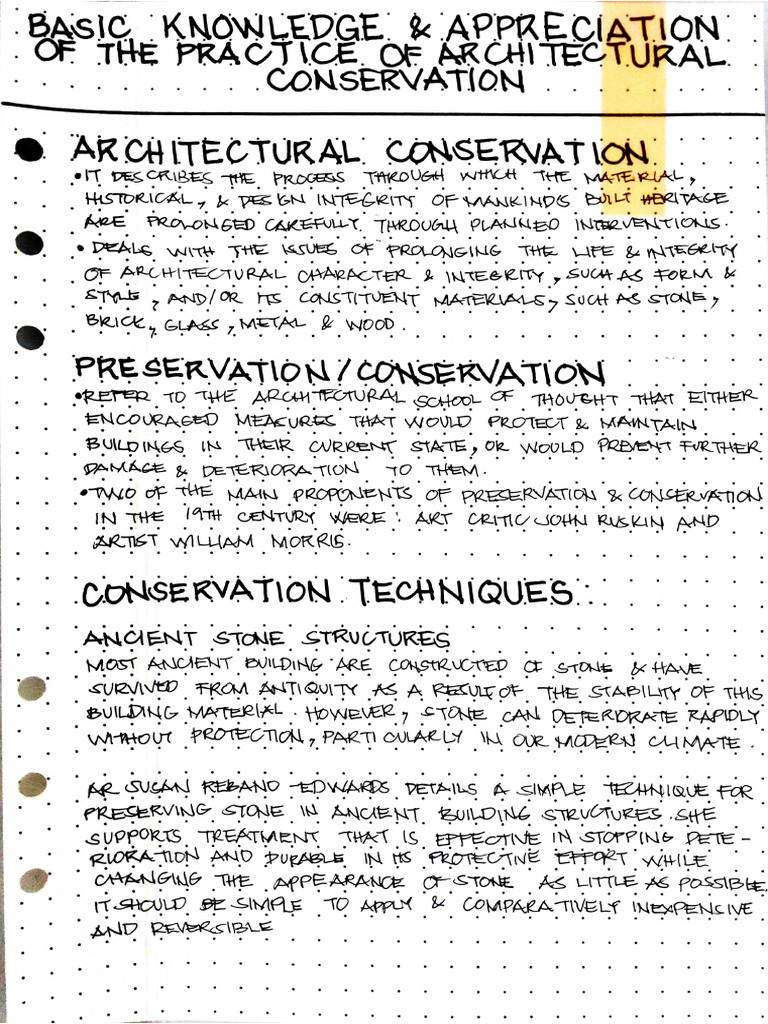 BASIC KNOWLEDGE & APPRECIATION
OF THE PRACTICE OF ARCHITECTURAL
CONSERVATION
ARCHITECTURAL CONSERVATION
• IT DESCRIBES THE PROCESS THROUGH WHICH THE MATERIAL,
HISTORICAL, & DESIGN INTEGRITY OF MANKIND'S BUILT HERITAGE
ARE PROLONGED CAREFULLY THROUGH PLANNED INTERVENTIONS.
• DEALS WITH THE ISSUES OF PROLONGING THE LIFE & INTEGRITY
OF ARCHITECTURAL CHARACTER & INTEGRITY, SUCH AS FORM &
STYLE, AND/OR ITS CONSTITUENT MATERIALS, SUCH AS STONE,
BRICK, GLASS, METAL & WOOD.
PRESERVATION/CONSERVATION
• REFER TO THE ARCHITECTURAL SCHOOL OF THOUGHT THAT EITHER
ENCOURAGED MEASURES THAT WOULD PROTECT & MAINTAIN
BUILDINGS IN THEIR CURRENT STATE, OR WOULD PREVENT FURTHER
DAMAGE & DETERIORATION TO THEM.
• TWO OF THE MAIN PROPONENTS OF PRESERVATION & CONSERVATION
IN THE 19TH CENTURY WERE: ART CRITIC JOHN RUSKIN AND
ARTIST WILLIAM MORRIS.
CONSERVATION TECHNIQUES:
ANCIENT STONE STRUCTURES
MOST ANCIENT BUILDING ARE CONSTRUCTED OF STONE & HAVE
SURVIVED FROM ANTIQUITY AS A RESULT OF THE STABILITY OF THIS
BUILDING MATERIAL. HOWEVER, STONE CAN DETERIORATE RAPIDLY
WITHOUT PROTECTION, PARTICULARLY IN OUR MODERN CLIMATE.
AR SUSAN REBANO-EDWARDS DETAILS A SIMPLE TECHNIQUE FOR
PRESERVING STONE IN ANCIENT BUILDING STRUCTURES. SHE
SUPPORTS TREATMENT THAT IS EFFECTIVE IN STOPPING DETE-
RIORATION AND DURABLE IN ITS PROTECTIVE EFFORT WHILE
CHANGING THE APPEARANCE OF STONE AS LITTLE AS POSSIBLE.
IT SHOULD BE SIMPLE TO APPLY & COMPARATIVELY INEXPENSIVE
AND REVERSIBLE